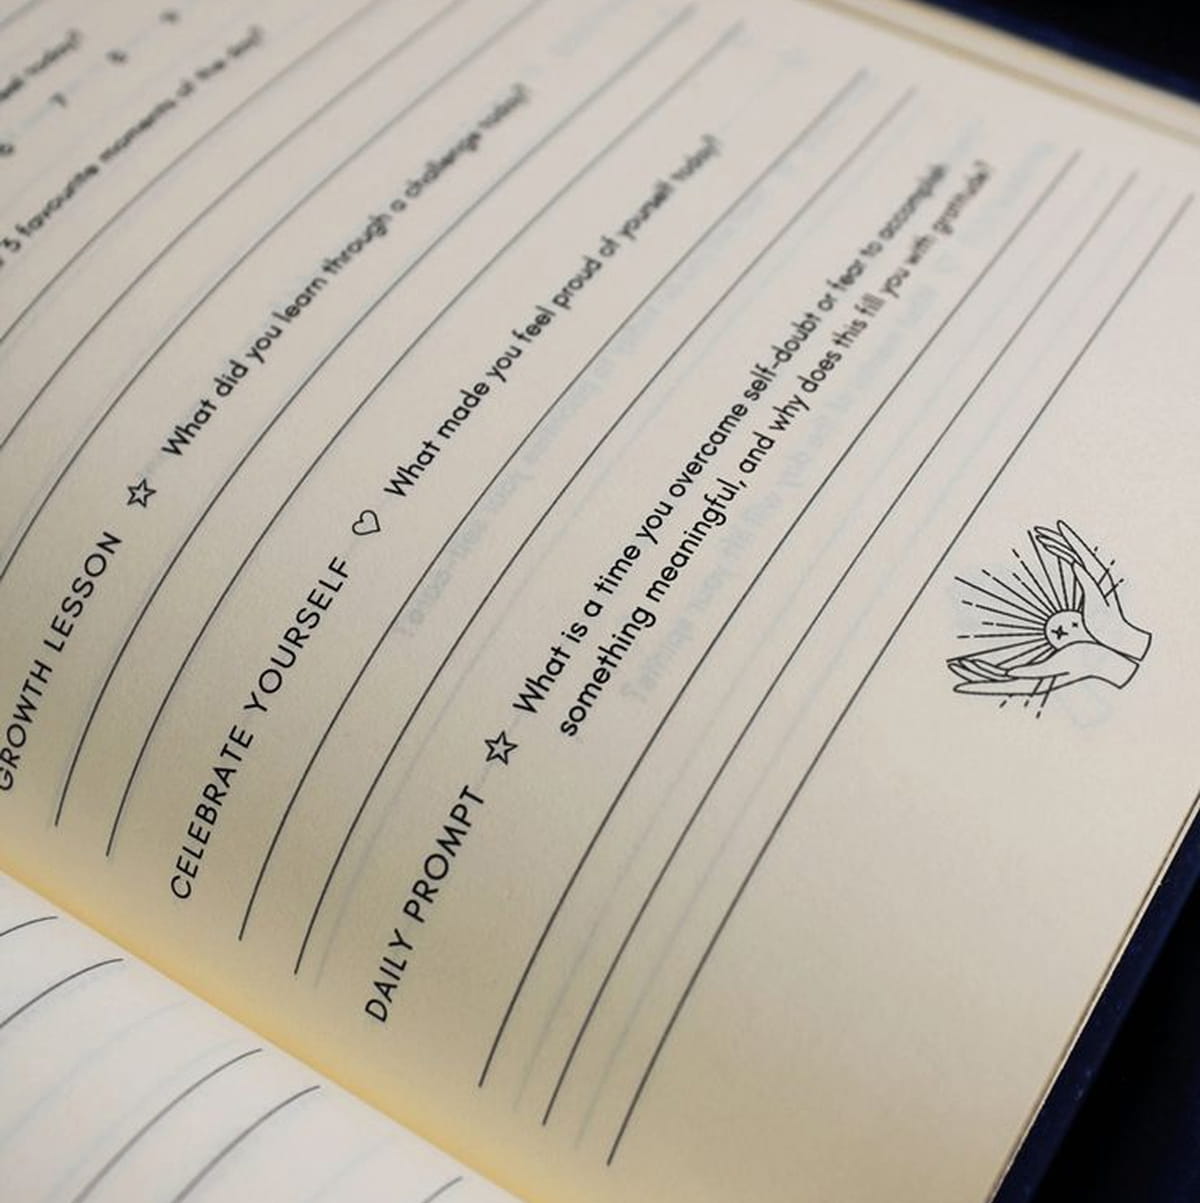 today?
6 7 8
3 favourite moments of the day?
GROWTH LESSON ☆ What did you learn through a challenge today?
CELEBRATE YOURSELF ♡ What made you feel proud of yourself today?
DAILY PROMPT ☆ What is a time you overcame self-doubt or fear to accomplish
something meaningful, and why does this fill you with gratitude?